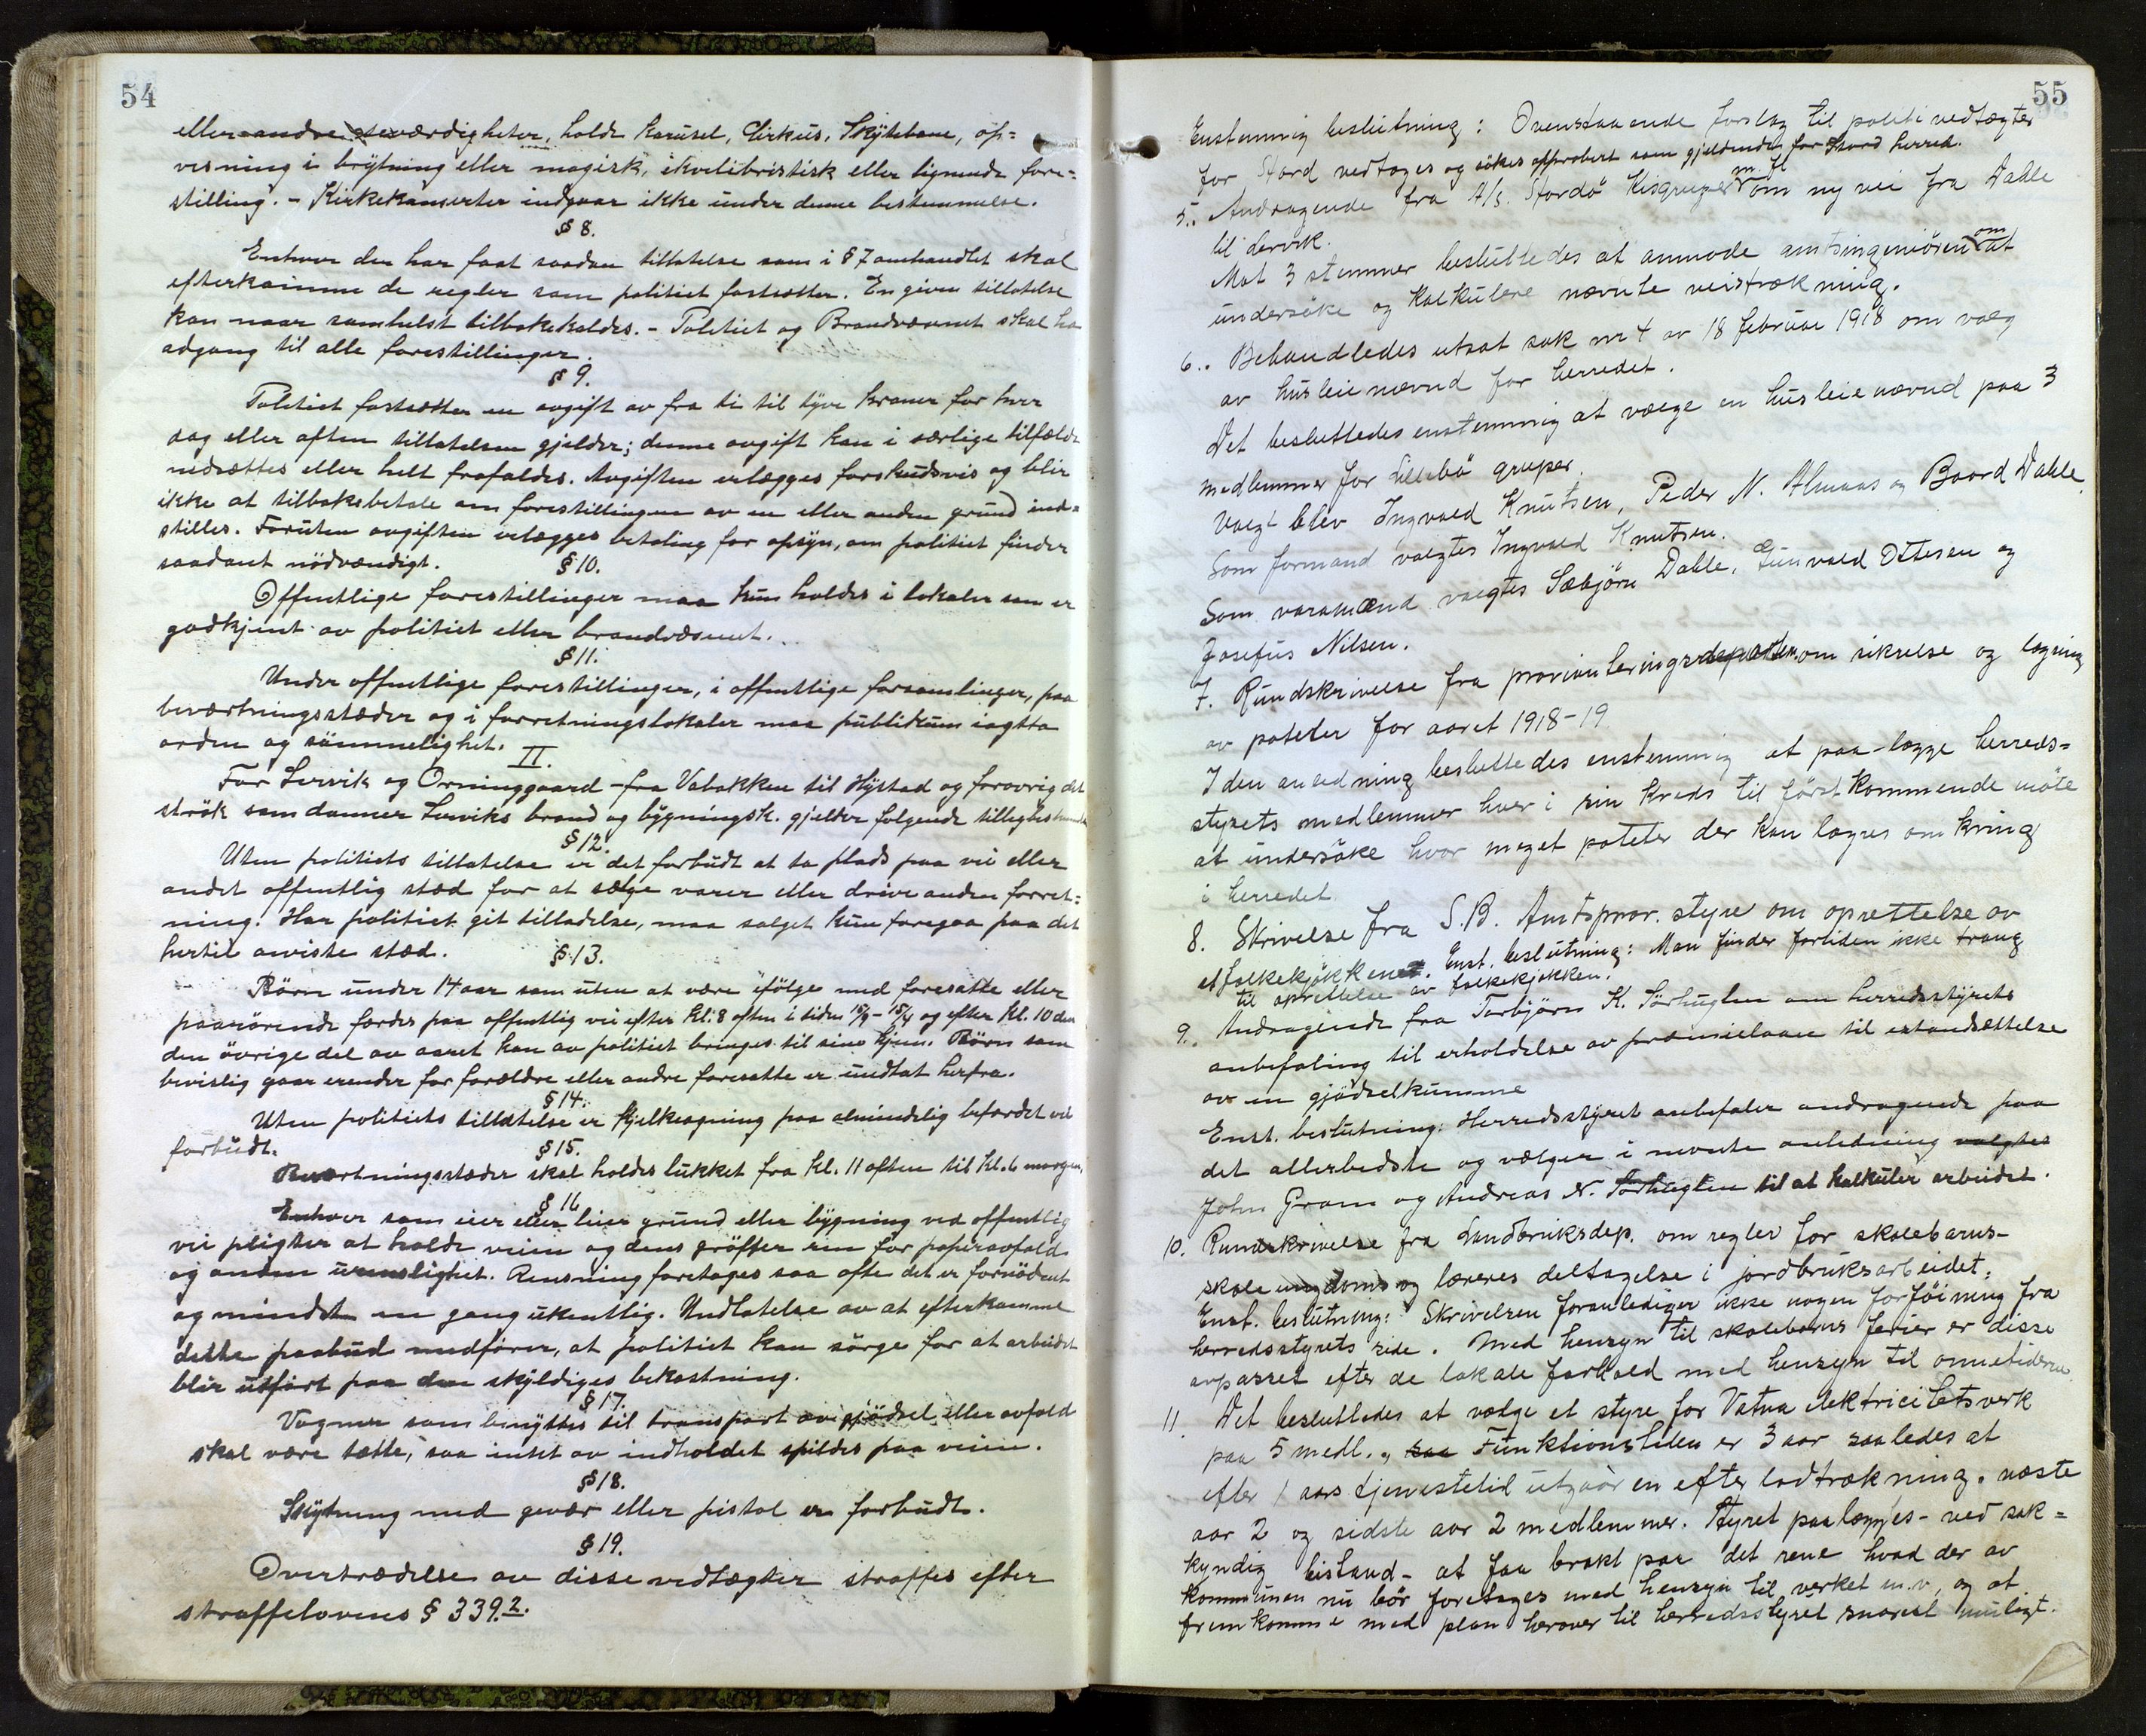 54
eller andre seværdigheter, holde karusel, Cirkus, Skytebane, op=
visning i brytning eller magisk, ekvelibristisk eller lignende fore=
stilling. - Kirkekonserter indgaar ikke under denne bestemmelse.
§ 8.
Enhver der har faat saadan tillatelse som i § 7 omhandlet skal
efterkomme de regler som politiet fastsætter. En given tillatelse
kan naar somhelst tilbakekaldes. - Politiet og Brandvæsenet skal ha
adgang til alle forestillinger.
§ 9.
Politiet fastsætter en avgift av fra ti til tyve kroner for hver
dag eller aften tillatelsen gjelder; denne avgift kan i særlige tilfælde
nedsættes eller helt frafaldes. Avgiften erlægges forskudsvis og blir
ikke at tilbakebetale om forestillingen av en eller anden grund ind=
stilles. Foruten avgiften erlægges betaling for opsyn, om politiet finder
saadant nödvændigt.
§ 10.
Offentlige forestillinger maa kun holdes i lokaler som er
godkjent av politiet eller brandvæsenet.
§ 11.
Under offentlige forestillinger, i offentlige forsamlinger, paa
beværtningsstæder og i forretningslokaler maa publikum iagtta
orden og sömmelighet.
II.
For Lervik og Orninggaard - fra Vabakken til Hystad og forövrig det
strök som danner Lerviks brand og bygningsk. gjelder folgende
§ 12.
Uten politiets tillatelse er det forbudt at ta plads paa vei eller
andet offentlig stæd for at sælge varer eller drive anden forret=
ning. Har politiet git tilladelse, maa salget kun foregaa paa det
hertil anviste stæd.
§ 13.
Börn under 14 aar som uten at være ifölge med foresatte eller
paarörende færdes paa offentlig vei efter kl. 8 aften i tiden 15/9 - 15/4 og efter kl. 10 den
den övrige del av aaret kan av politiet bringes til sine hjem. Börn som
bevislig gaar erender for forældre eller andre foresatte er undtat herfra.
§ 14.
Uten politiets tillatelse er kjelkeagning paa almindelig befærdet vei
forbudt.
§ 15.
Beværtningsstæder skal holdes lukket fra kl. 11 aften til kl. 6 morgen.
§ 16
Enhver som eier eller leier grund eller bygning ved offentlig
vei pligter at holde veien og dens gröfter ren for papiravfald
og anden urenslighet. Rensning foretages saa ofte det er fornödent
og mindst en gang ukentlig. Undlatelse av at efterkomme
dette paabud medförer, at politiet kan sörge for at arbeidet
blir utfört paa den skyldiges bekostning.
§ 17.
Vogner som benyttes til transport av gjödsel eller avfald
skal være tætte, saa intet av indholdet spildes paa veien.
§ 18.
Skytning med gevær eller pistol er forbudt.
§ 19.
Overtrædelse av disse vedtægter straffes efter
straffelovens § 339.2.
55
Enstemmig beslutning: Ovenstaaende forslag til politivedtægter
for Stord vedtages og sökes approbert som gjeldende for Stord herred.
5.. Andragende fra A/s. Stordö Kisgruper m. fl om ny vei fra Dahle
til Lervik.
Mot 3 stemmer besluttedes at anmode amtsingeniören om at
undersöke og kalkulere nævnte veistrækning.
6.. Behandledes utsat sak nr 4 av 18 februar 1918 om valg
av husleienævnd for herredet.
Det besluttedes enstemmig at vælge en husleienævnd paa 3
medlemmer for Lillebö gruper.
Valgt blev Ingvald Knutsen, Peder N. Almaas og Baard Dahle.
Som formand valgtes Ingvald Knutsen.
Som varamænd valgtes Sæbjörn Dahle, Gunvald Ottesen og
Josefus Nilsen.
7. Rundskrivelse fra provianteringsdepartem. om sikrelse og lagring
av poteter for aaret 1918-19
I den anledning besluttedes enstemmig at paa-lægge herreds=
styrets medlemmer hver i sin kreds til först kommende möte
at undersöke hvor meget poteter der kan lagres om kring
i herredet
8. Skrivelse fra S.B. Amtsprov. styre om oprettelse av
et folkekjökken. Enst. beslutning: Man finder fortiden ikke trang
til oprettelse av folkekjökken.
9. Andragende fra Torbjörn K. Sörhuglen om herredsstyrets
anbefaling til erholdelse av præmielaan til istandsættelse
av en gjödselkumme
Enst. beslutning: Herredsstyret anbefaler andragende paa
det allerbedste og vælger i nevnte anledning valgtes
John Gram og Andreas N. Sörhuglen til at kalkuler arbeidet.
10. Rundskrivelse fra Landbruksdep. om regler for skolebarns-
skole ungdoms og læreres deltagelse i jordbruksarbeidet.
Enst. beslutning: Skrivelsen foranlediger ikke nogen forföining fra
herredsstyrets side. Med hensyn til skolebarns ferier er disse
avpasset efter de lokale forhold med hensyn til onnetiderne.
11. Det besluttedes at vælge et styre for Vatna elektricitetsverk
paa 5 medl., saa Funktionstiden er 3 aar saaledes at
efter 1 aars tjenestetid utgaar en efter lodtrækning. næste
aar 2 og sidste aar 2 medlemmer. Styret paalægges - ved sak=
kyndig bistand - at faa brakt paa det rene hvad der av
kommunen nu bör foretages med hensyn til verket m.v. og at
fremkomme med plan herover til herredsstyret snarest muligt.